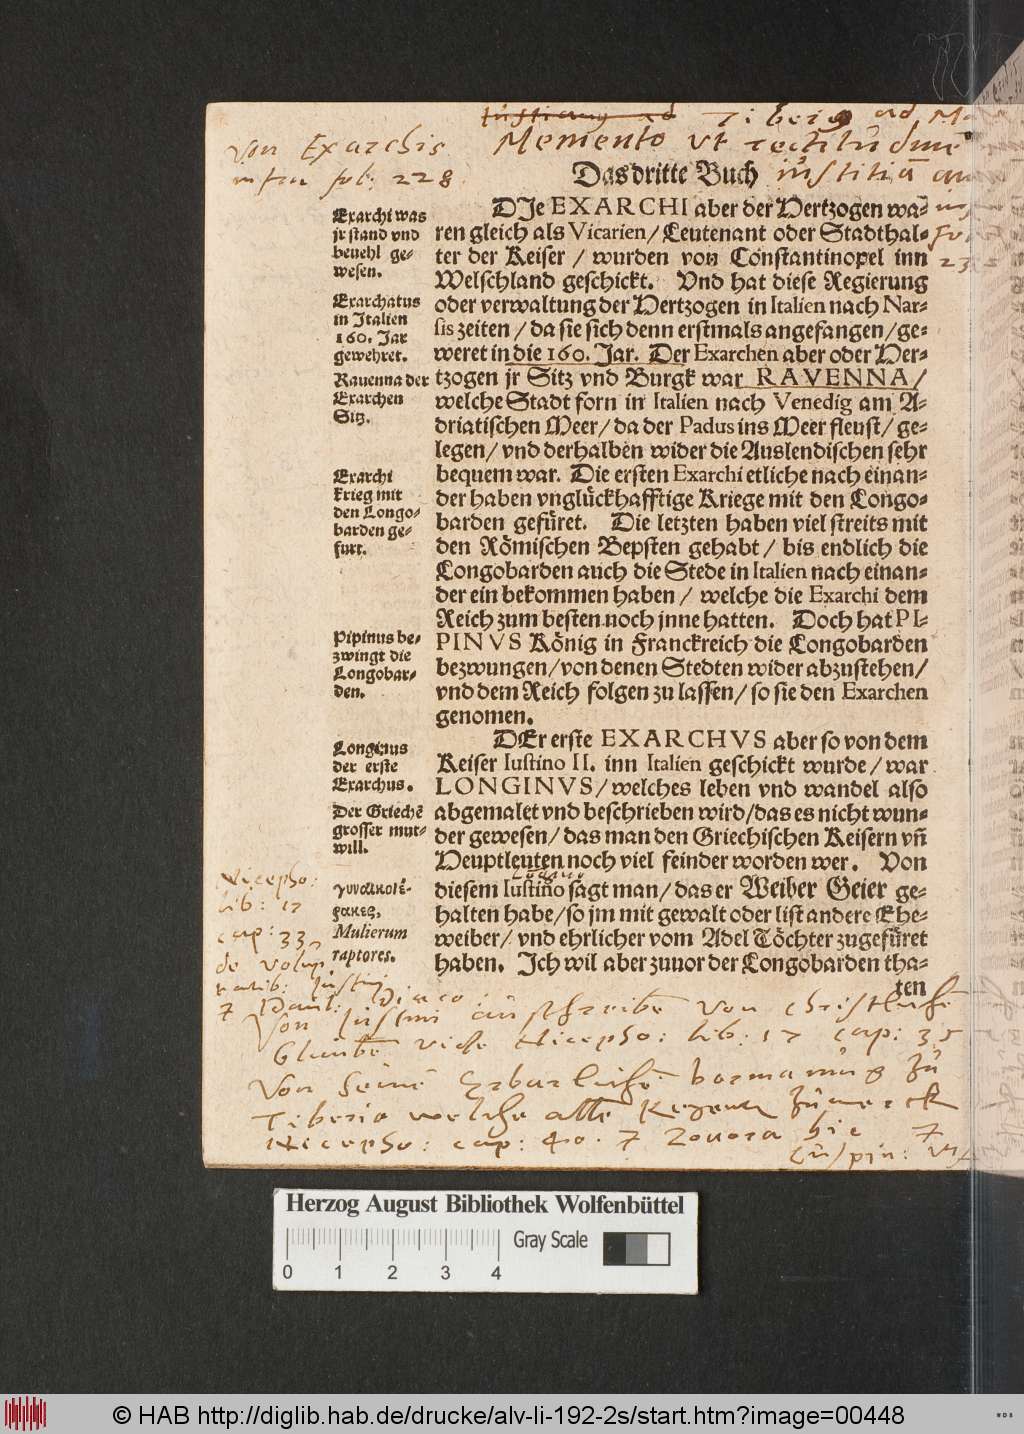 Tiberig ad
Von Exarchis
Memento ut rectitudinē
infra fol: 228
Das dritte Buch
iustitiā
DJe EXARCHI aber der Hertzogen wa⸗
ren gleich als Vicarien/ Leutenant oder Stadthal⸗
ter der Keiser / wurden von Constantinopel inn
Welschland geschickt. Vnd hat diese Regierung
oder verwaltung der Hertzogen in Italien nach Nar-
sis zeiten / da sie sich denn erstmals angefangen / ge⸗
weret in die 160. Jar. Der Exarchen aber oder Her⸗
tzogen jr Sitz vnd Burgk war RAVENNA/
welche Stadt forn in Italien nach Venedig am A⸗
driatischen Meer/ da der Padus ins Meer fleust/ ge⸗
legen/ vnd derhalben wider die Auslendischen sehr
bequem war. Die ersten Exarchi etliche nach einan⸗
der haben vnglückhafftige Kriege mit den Longo⸗
barden gefüret. Die letzten haben viel streits mit
den Römischen Bepsten gehabt / bis endlich die
Longobarden auch die Stede in Italien nach einan⸗
der ein bekommen haben / welche die Exarchi dem
Reich zum besten noch jnne hatten. Doch hat PI-
PINVS König in Franckreich die Longobarden
bezwungen/ von denen Stedten wider abzustehen/
vnd dem Reich folgen zu lassen/ so sie den Exarchen
genomen.
DEr erste EXARCHVS aber so von dem
Keiser Iustino II. inn Italien geschickt wurde/ war
LONGINVS/ welches leben vnd wandel also
abgemalet vnd beschrieben wird/ das es nicht wun⸗
der gewesen/ das man den Griechischen Keisern vñ
Heuptleuten noch viel feinder worden wer. Von
diesem Iustino sagt man/ das er Weiber Geier ge⸗
halten habe/ so jm mit gewalt oder list andere Ehe⸗
weiber/ vnd ehrlicher vom Adel Töchter zugefüret
haben. Ich wil aber zuuor der Longobarden tha⸗
ten
Exarchi was
jr stand vnd
beuehl ge⸗
wesen.
Exarchatus
in Italien
160. Jar
gewehret.
Rauenna der
Exarchen
Sitz.
Exarchi
krieg mit
den Longo⸗
barden ge⸗
furt.
Pipinus be⸗
zwingt die
Longobar⸗
den.
Longinus
der erste
Exarchus.
Der Griechē
grosser mut⸗
will.
Mulierum
raptores.
Nicepho:
lib: 17
cap: 33
Paul: Diaco
Von Justini
von christliche
Glaubē vide Nicepho: lib: 17 cap: 35
Von seinē
Tiberio welche alle
Nicepho: cap: 40. Zonora hic
Cuspin:
Herzog August Bibliothek Wolfenbüttel
Gray Scale
0 1 2 3 4
© HAB http://diglib.hab.de/drucke/alv-li-192-2s/start.htm?image=00448